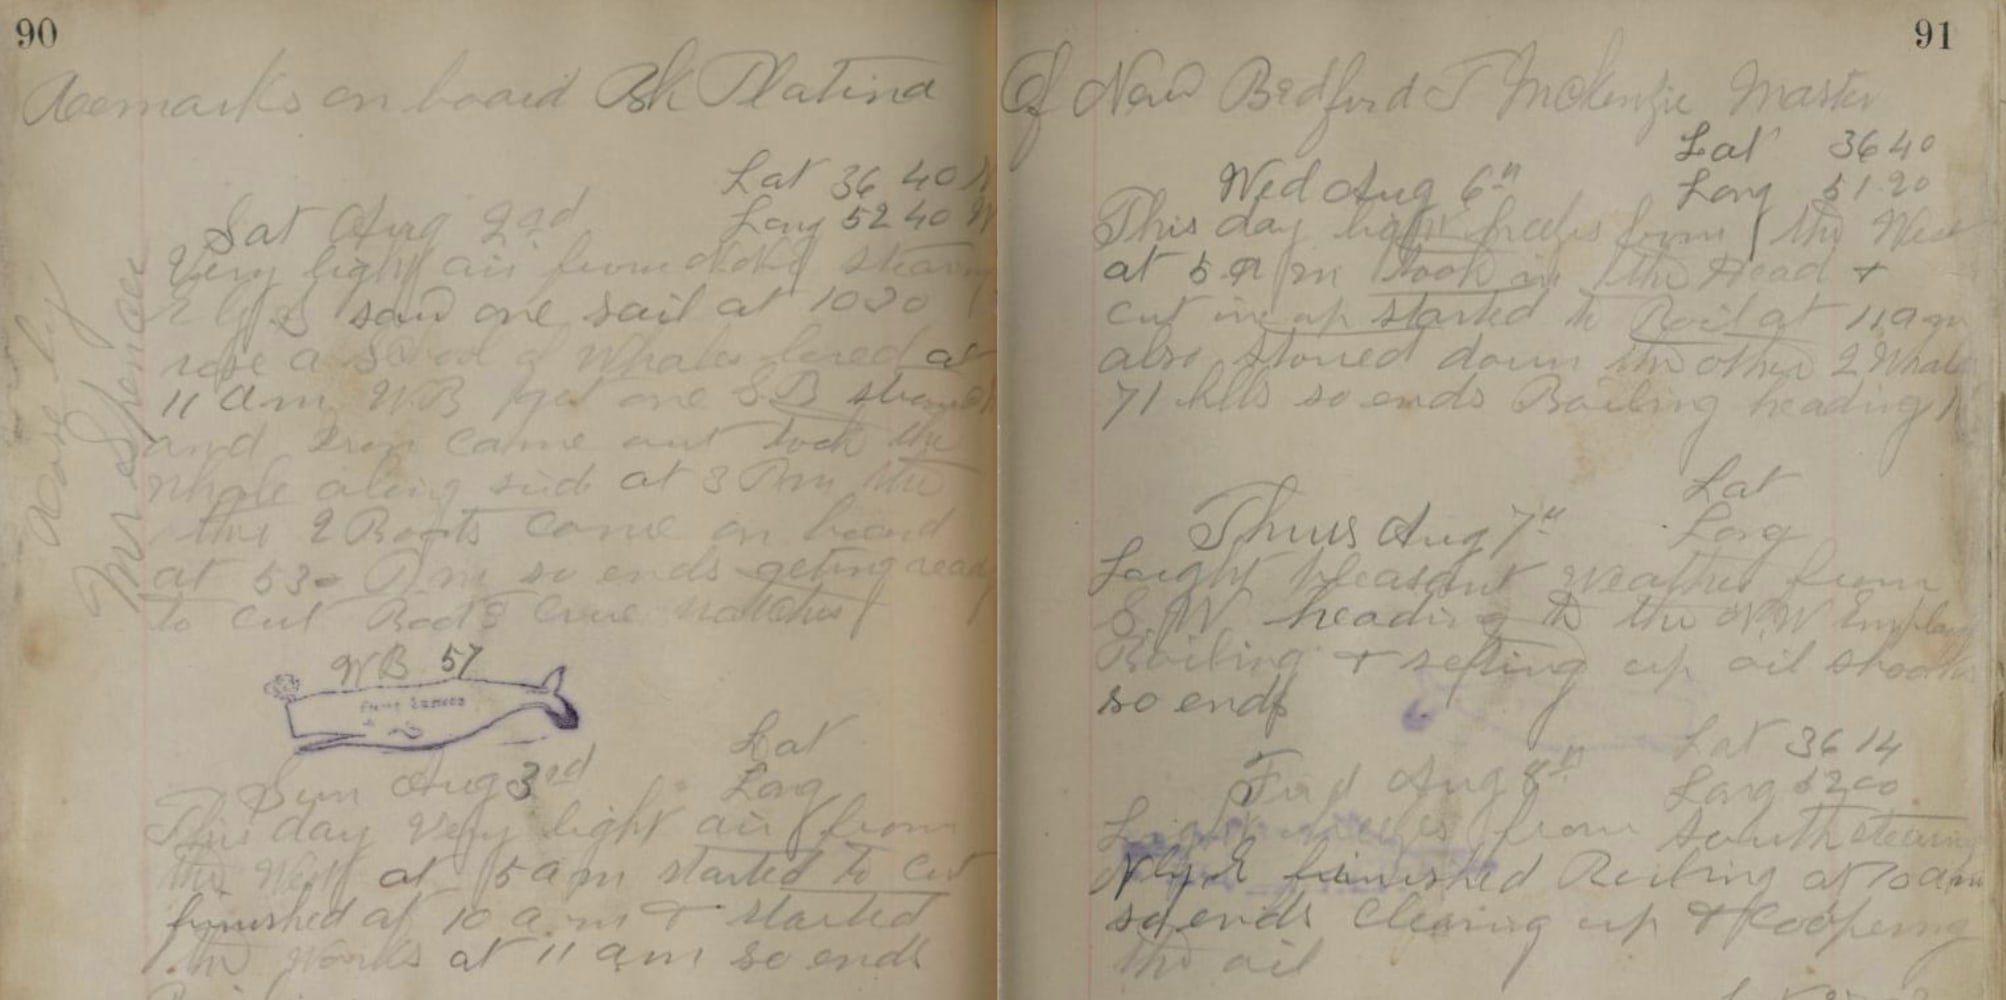 90
Remarks on board Bk Platina
Lat 36 40 N
Sat Aug 2nd Long 52 40 W
Very light air from steering
E by S saw one sail at 1030
rose a School of Whales lored at
11 am WB got one SB
and Iron came out took the
whale along side at 3 Pm the
the 2 Boats come on board
at 530 P.m so ends geting ready
to cut Boats Crue watches
Mr Spencer
WB 57
Lat
Sun Aug 3rd Long
This day very light air from
the West at 5 am started to cut
finished at 10 a.m & started
the works at 11 am so ends
91
Of New Bedford T McKenzie Master
Lat 36 40
Wed Aug 6th Long 51.20
This day light breezes from the West
at 5 a m took in the Head +
cut in up started to Boil at 11 am
also stowed down the other 2 Whale
71 blls so ends Boiling heading
Lat
Thurs Aug 7th Long
Laight pleasant weather from
S.W heading to the N.W Employ
Boiling + setting up oil shooks
so ends
Lat 36 14
Frid Aug 8th Long 52 00
Light breezes from South steering
N by E finished Boiling at 7 am
so ends Clearing up + Coopering
the oil